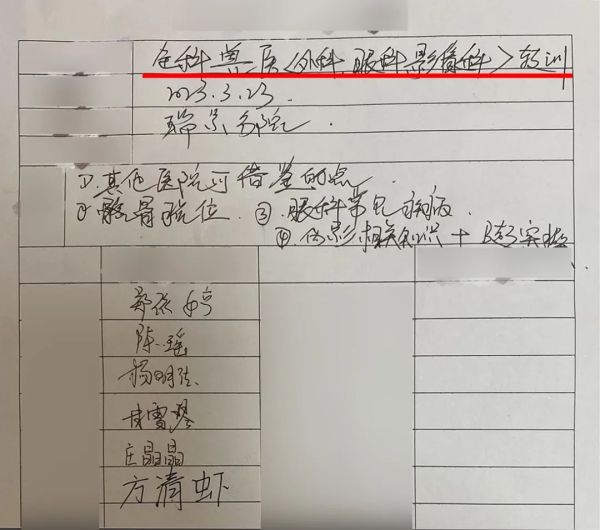 全科兽医<外科、眼科、影像科>培训
2023.3.23.
瑞京分院.
①其他医院可借鉴的点.
②髋骨脱位 ③眼科常见疾病
④伪影相关知识+B超实操
陈瑶
杨明
甘雪琴
庄晶晶
方清虾